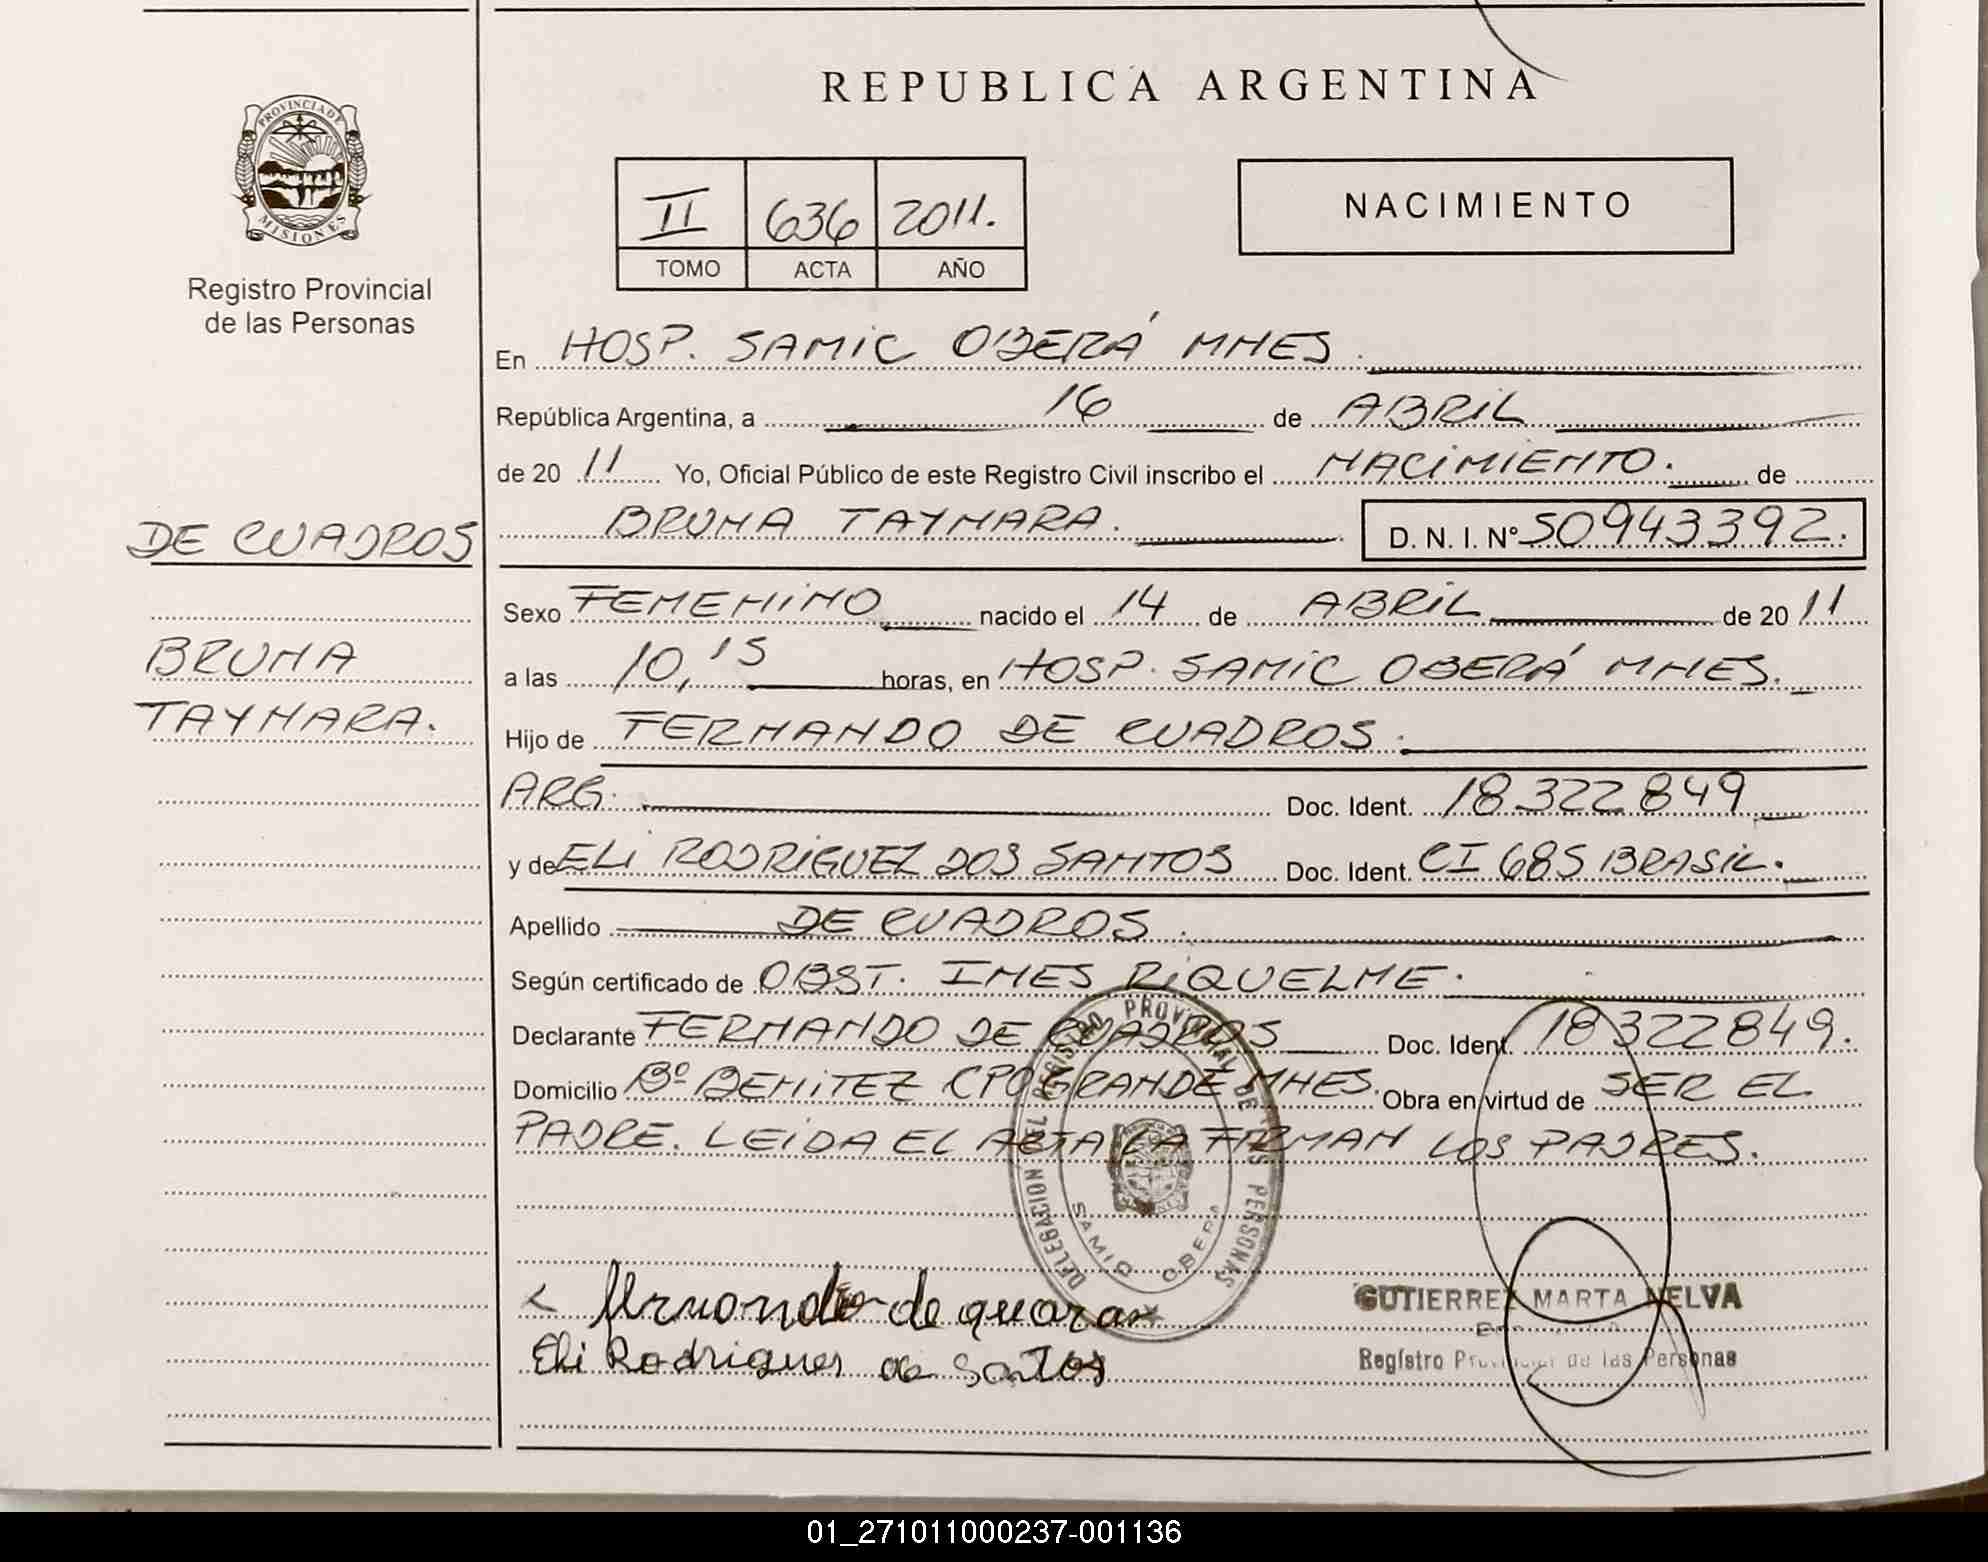 REPUBLICA ARGENTINA
PROVINCIA DE
MISIONES
Registro Provincial
de las Personas
II 636 2011.
TOMO ACTA AÑO
NACIMIENTO
En HOSP. SAMIC OBERÁ MNES.
República Argentina, a 16 de ABRIL
de 20 11 Yo, Oficial Público de este Registro Civil inscribo el NACIMIENTO. de
BRUNA TAYNARA. D. N. I. Nº 50943392.
DE CUADROS
BRUNA
TAYNARA.
Sexo FEMENINO nacido el 14 de ABRIL de 20 11
a las 10,15 horas, en HOSP. SAMIC OBERÁ MNES.
Hijo de FERNANDO DE CUADROS.
ARG. Doc. Ident. 18322849
y de ELI RODRIGUEZ DOS SANTOS Doc. Ident. CI 685 BRASIL.
Apellido DE CUADROS.
Según certificado de OBST. INES RIQUELME.
Declarante FERNANDO DE CUADROS Doc. Ident. 18322849.
Domicilio Bº BENITEZ CPO GRANDE MNES. Obra en virtud de SER EL
PADRE. LEIDA EL ACTA LA FIRMAN LOS PADRES.
DELEGACION DEL REGISTRO PROVINCIAL DE LAS PERSONAS
SAMIC OBERA
de
Eli Rodrigues de Santos
GUTIERREZ MARTA NELVA
Registro Provincial de las Personas
01_271011000237-001136